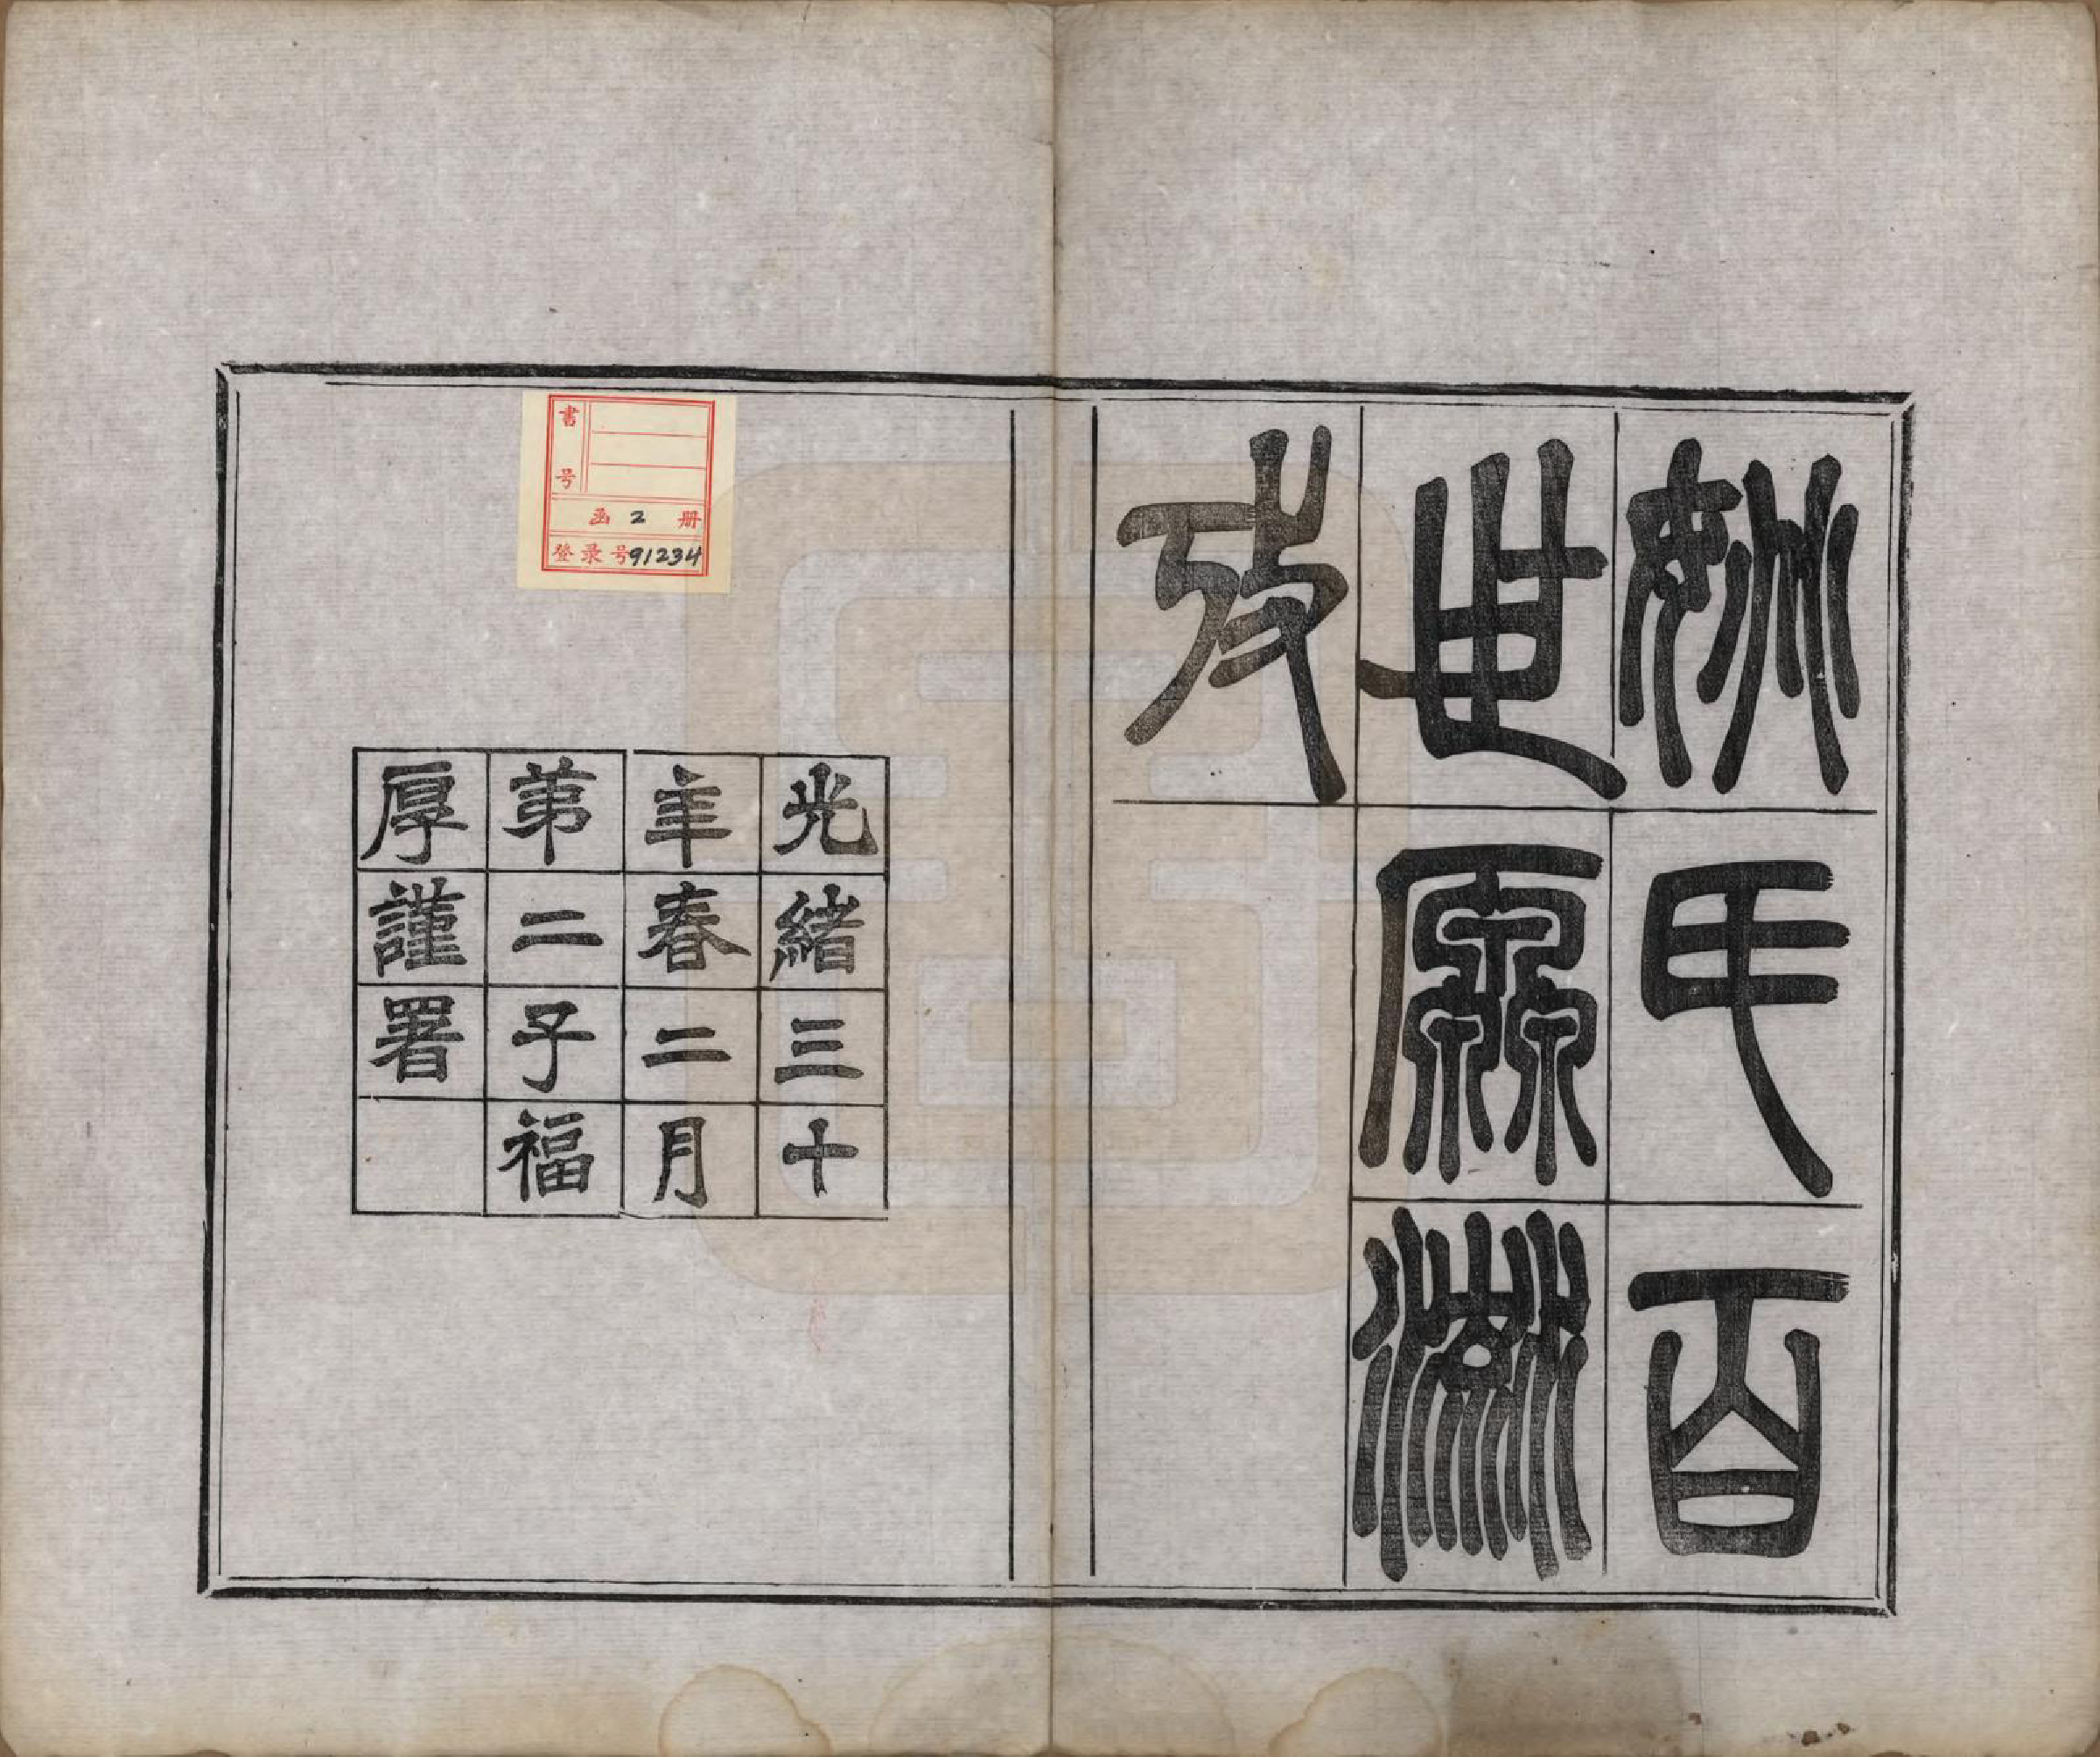 姚氏百
世厵流
攷
光緒三十
年春二月
苐二子福
厚謹署
書号
函 2 册
登录号91234